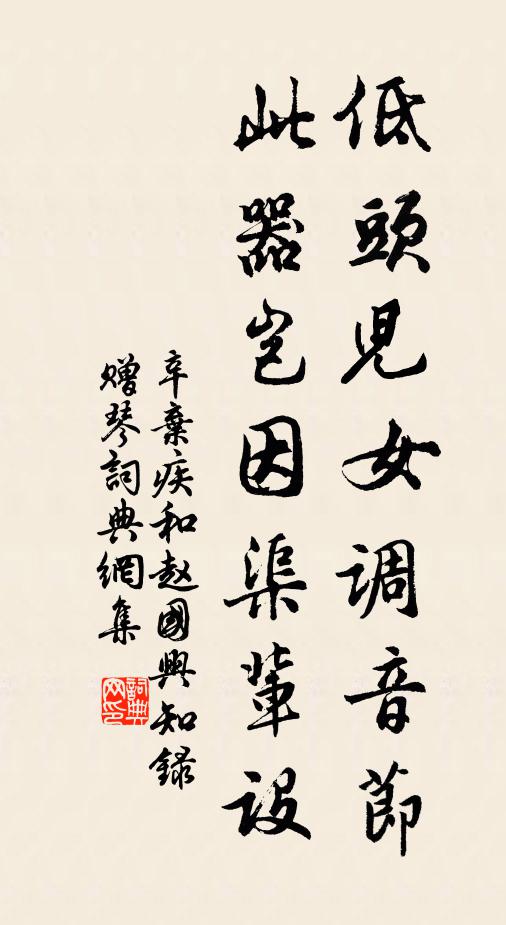 低頭児女调音節
此器岂因渠輩設
辛棄疾和赵國興知錄
赠琴詞典網集
詞典网印